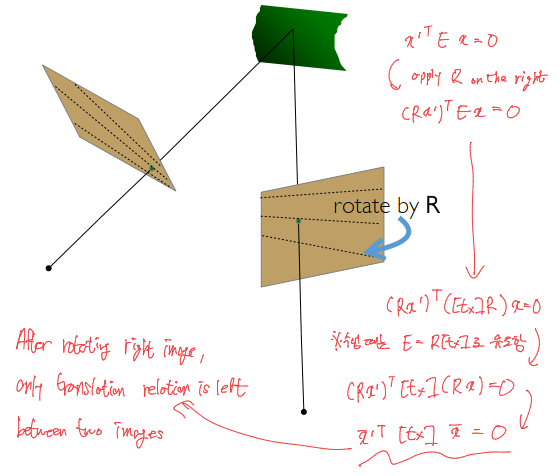 x'ᵀ E x = 0
apply R on the right
(Rx')ᵀ E x = 0
rotate by R
(Rx')ᵀ([tx]R)x = 0
E = R[tx]로 유도함
(Rx')ᵀ[tx](Rx) = 0
x'ᵀ [tx] x̄ = 0
After rotating right image,
only translation relation is left
between two images